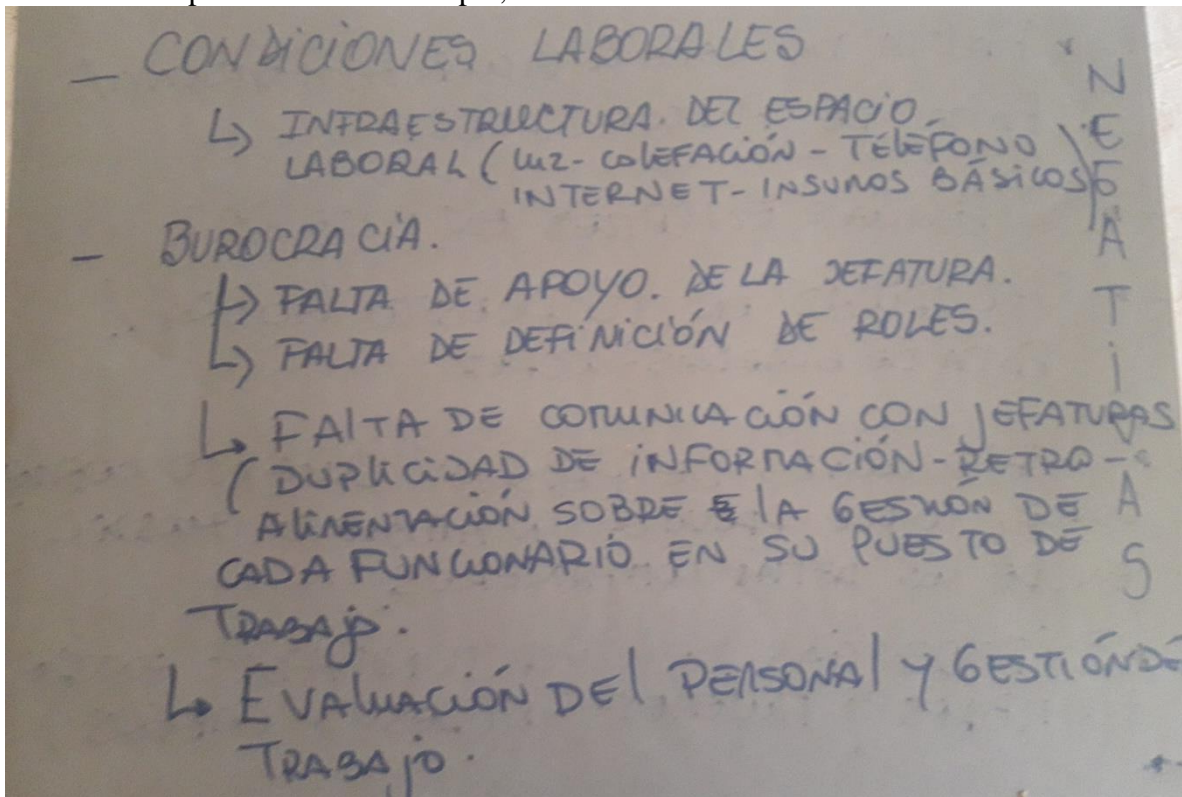 — CONDICIONES LABORALES
↳ INFRAESTRUCTURA. DEL ESPACIO
LABORAL ( LUZ - CALEFACIÓN - TÉLEFONO
INTERNET - INSUMOS BÁSICOS )
— BUROCRACIA.
↳ FALTA DE APOYO. DE LA JEFATURA.
↳ FALTA DE DEFINICIÓN DE ROLES.
↳ FALTA DE COMUNICACIÓN CON JEFATURAS
( DUPLICIDAD DE INFORMACIÓN - RETRO -
ALIMENTACIÓN SOBRE LA GESTIÓN DE
CADA FUNCIONARIO EN SU PUESTO DE
TRABAJO.
↳ EVALUACIÓN DEL PERSONAL Y GESTIÓN DE
TRABAJO.
NEGATIVAS